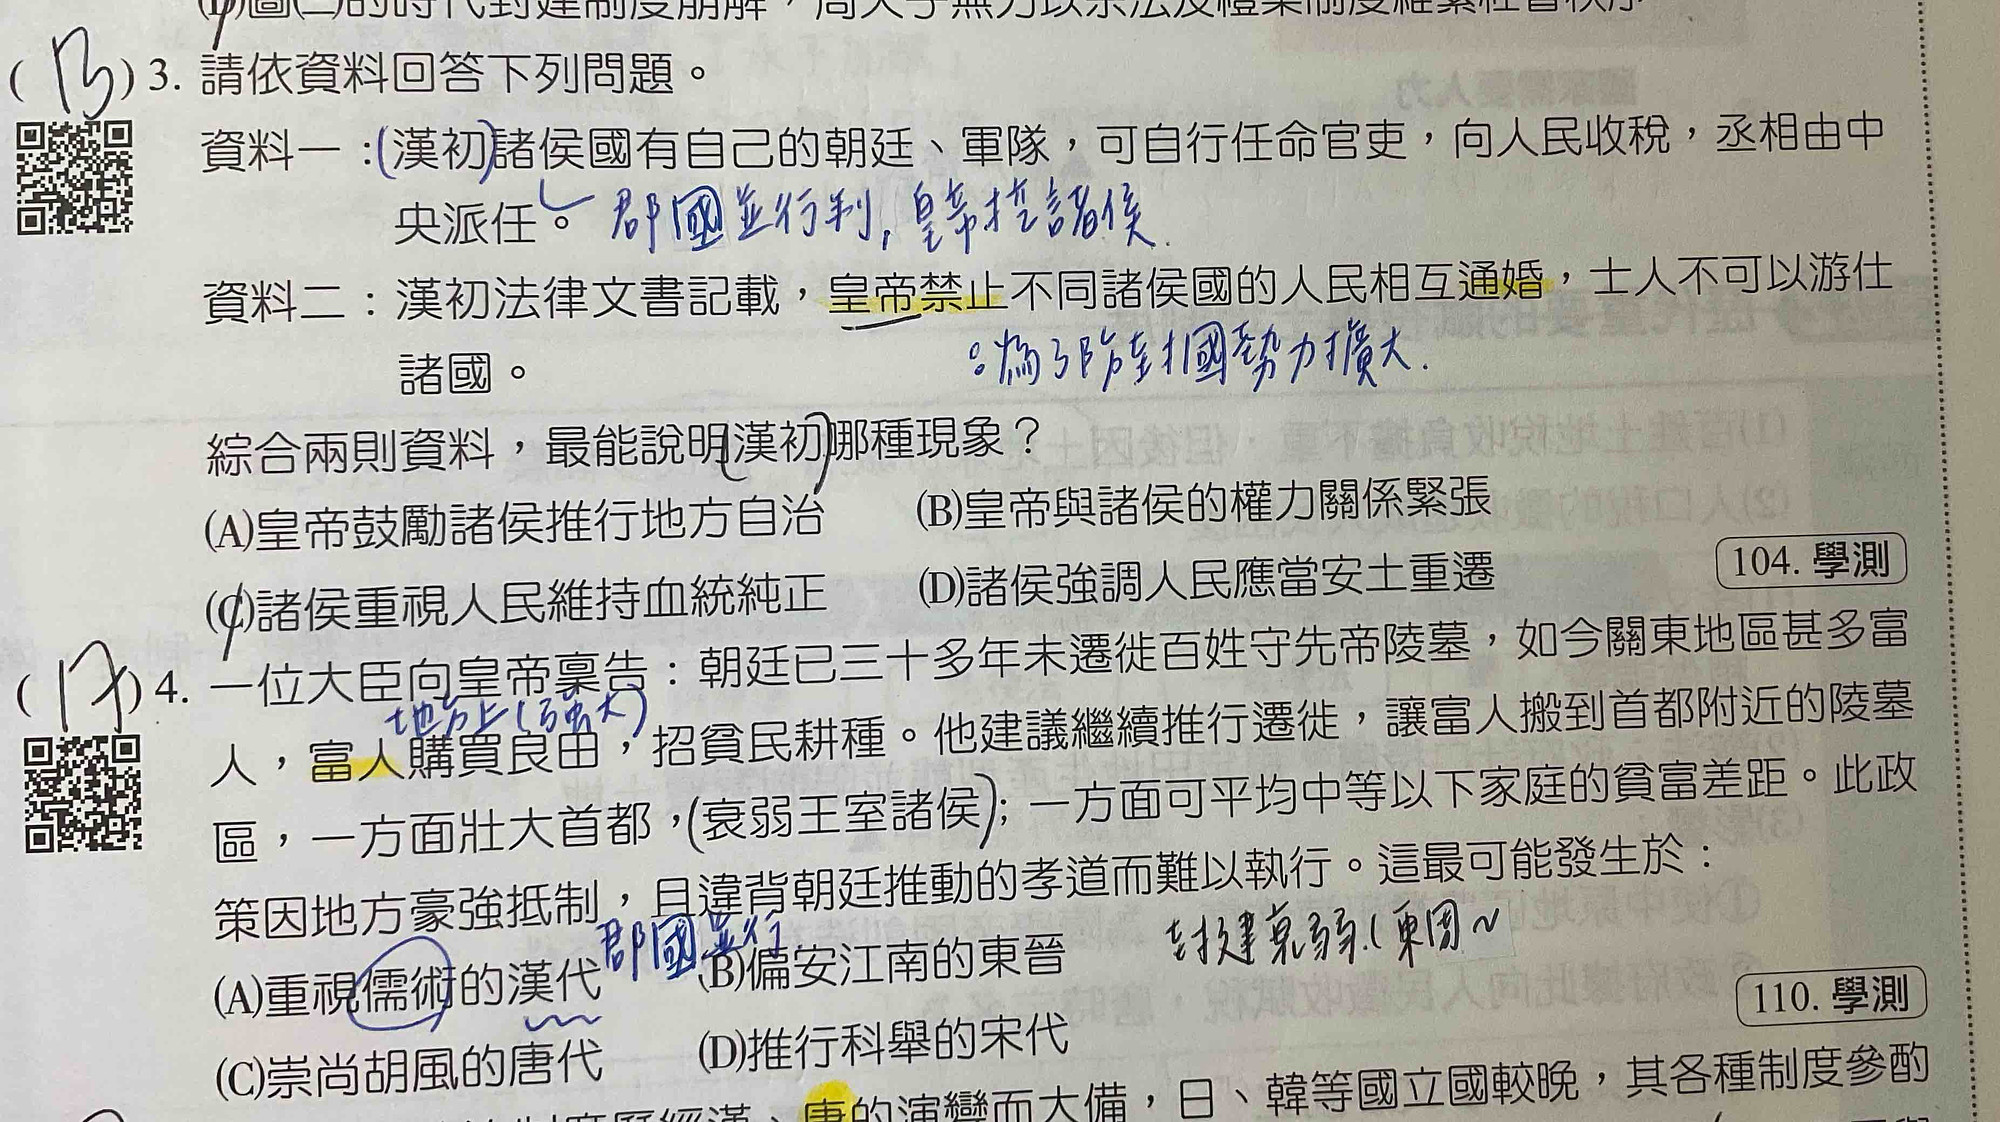 (B)3. 請依資料回答下列問題。
資料一:(漢初)諸侯國有自己的朝廷、軍隊,可自行任命官吏,向人民收稅,丞相由中
央派任。 郡國並行制,皇帝控諸侯.
資料二:漢初法律文書記載,皇帝禁止不同諸侯國的人民相互通婚,士人不可以游仕
諸國。 :為了防封國勢力擴大.
綜合兩則資料,最能說明(漢初)哪種現象?
(A)皇帝鼓勵諸侯推行地方自治 (B)皇帝與諸侯的權力關係緊張
(C)諸侯重視人民維持血統純正 (D)諸侯強調人民應當安土重遷 104. 學測
(A)4. 一位大臣向皇帝稟告:朝廷已三十多年未遷徙百姓守先帝陵墓,如今關東地區甚多富
地方上(強大)
人,富人購買良田,招貧民耕種。他建議繼續推行遷徙,讓富人搬到首都附近的陵墓
區,一方面壯大首都,(衰弱王室諸侯);一方面可平均中等以下家庭的貧富差距。此政
策因地方豪強抵制,且違背朝廷推動的孝道而難以執行。這最可能發生於:
郡國並行. 封建衰弱.(東周~
(A)重視儒術的漢代 (B)偏安江南的東晉
(C)崇尚胡風的唐代 (D)推行科舉的宋代 110. 學測
唐的演變而大備,日、韓等國立國較晚,其各種制度參酌